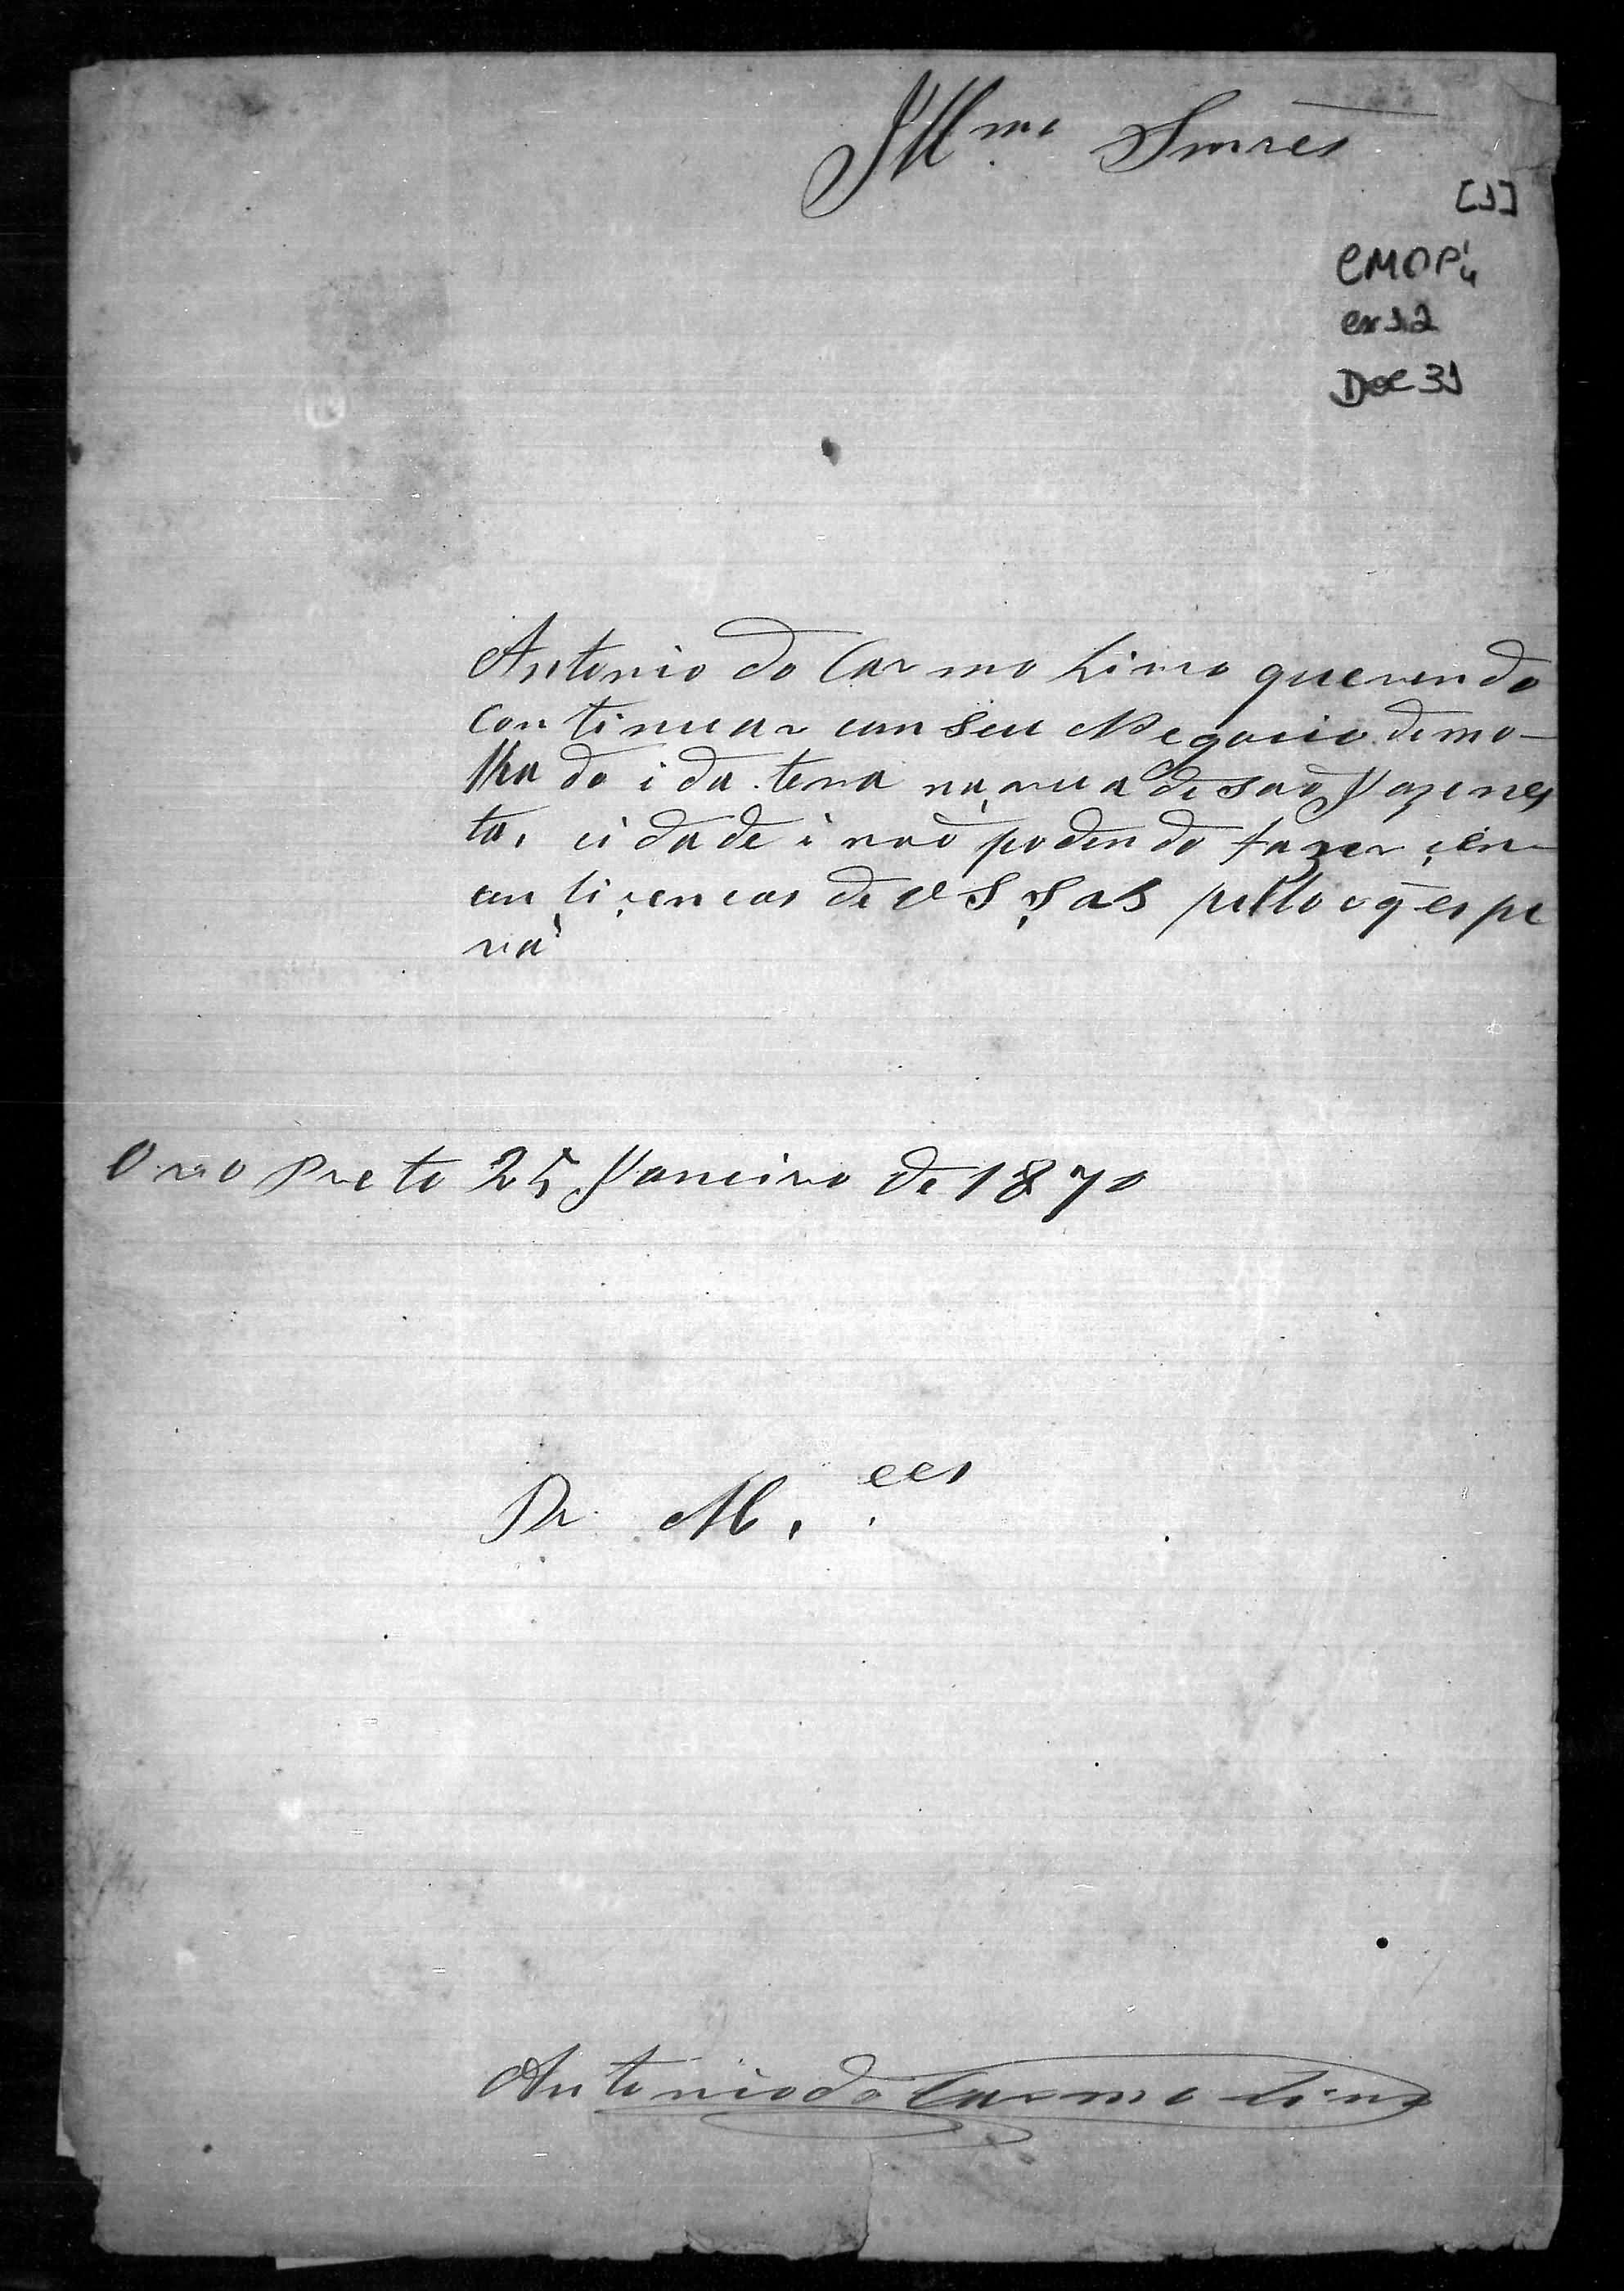 Illmo Snres
[1]
CMOP 1/4
cx 12
Doc 31
Antonio do Carmo Lima querendo
continuar com seu Negocio de mo-
lhado i da terra na rua de são Joze nes
ta, cidade i não podendo fazer, çen
an liçencas de V S Sas pello o q̃ espe
rá
Oro Preto 25 Janeiro de 1870
Pr M. ces
Antonio do Carmo Lima